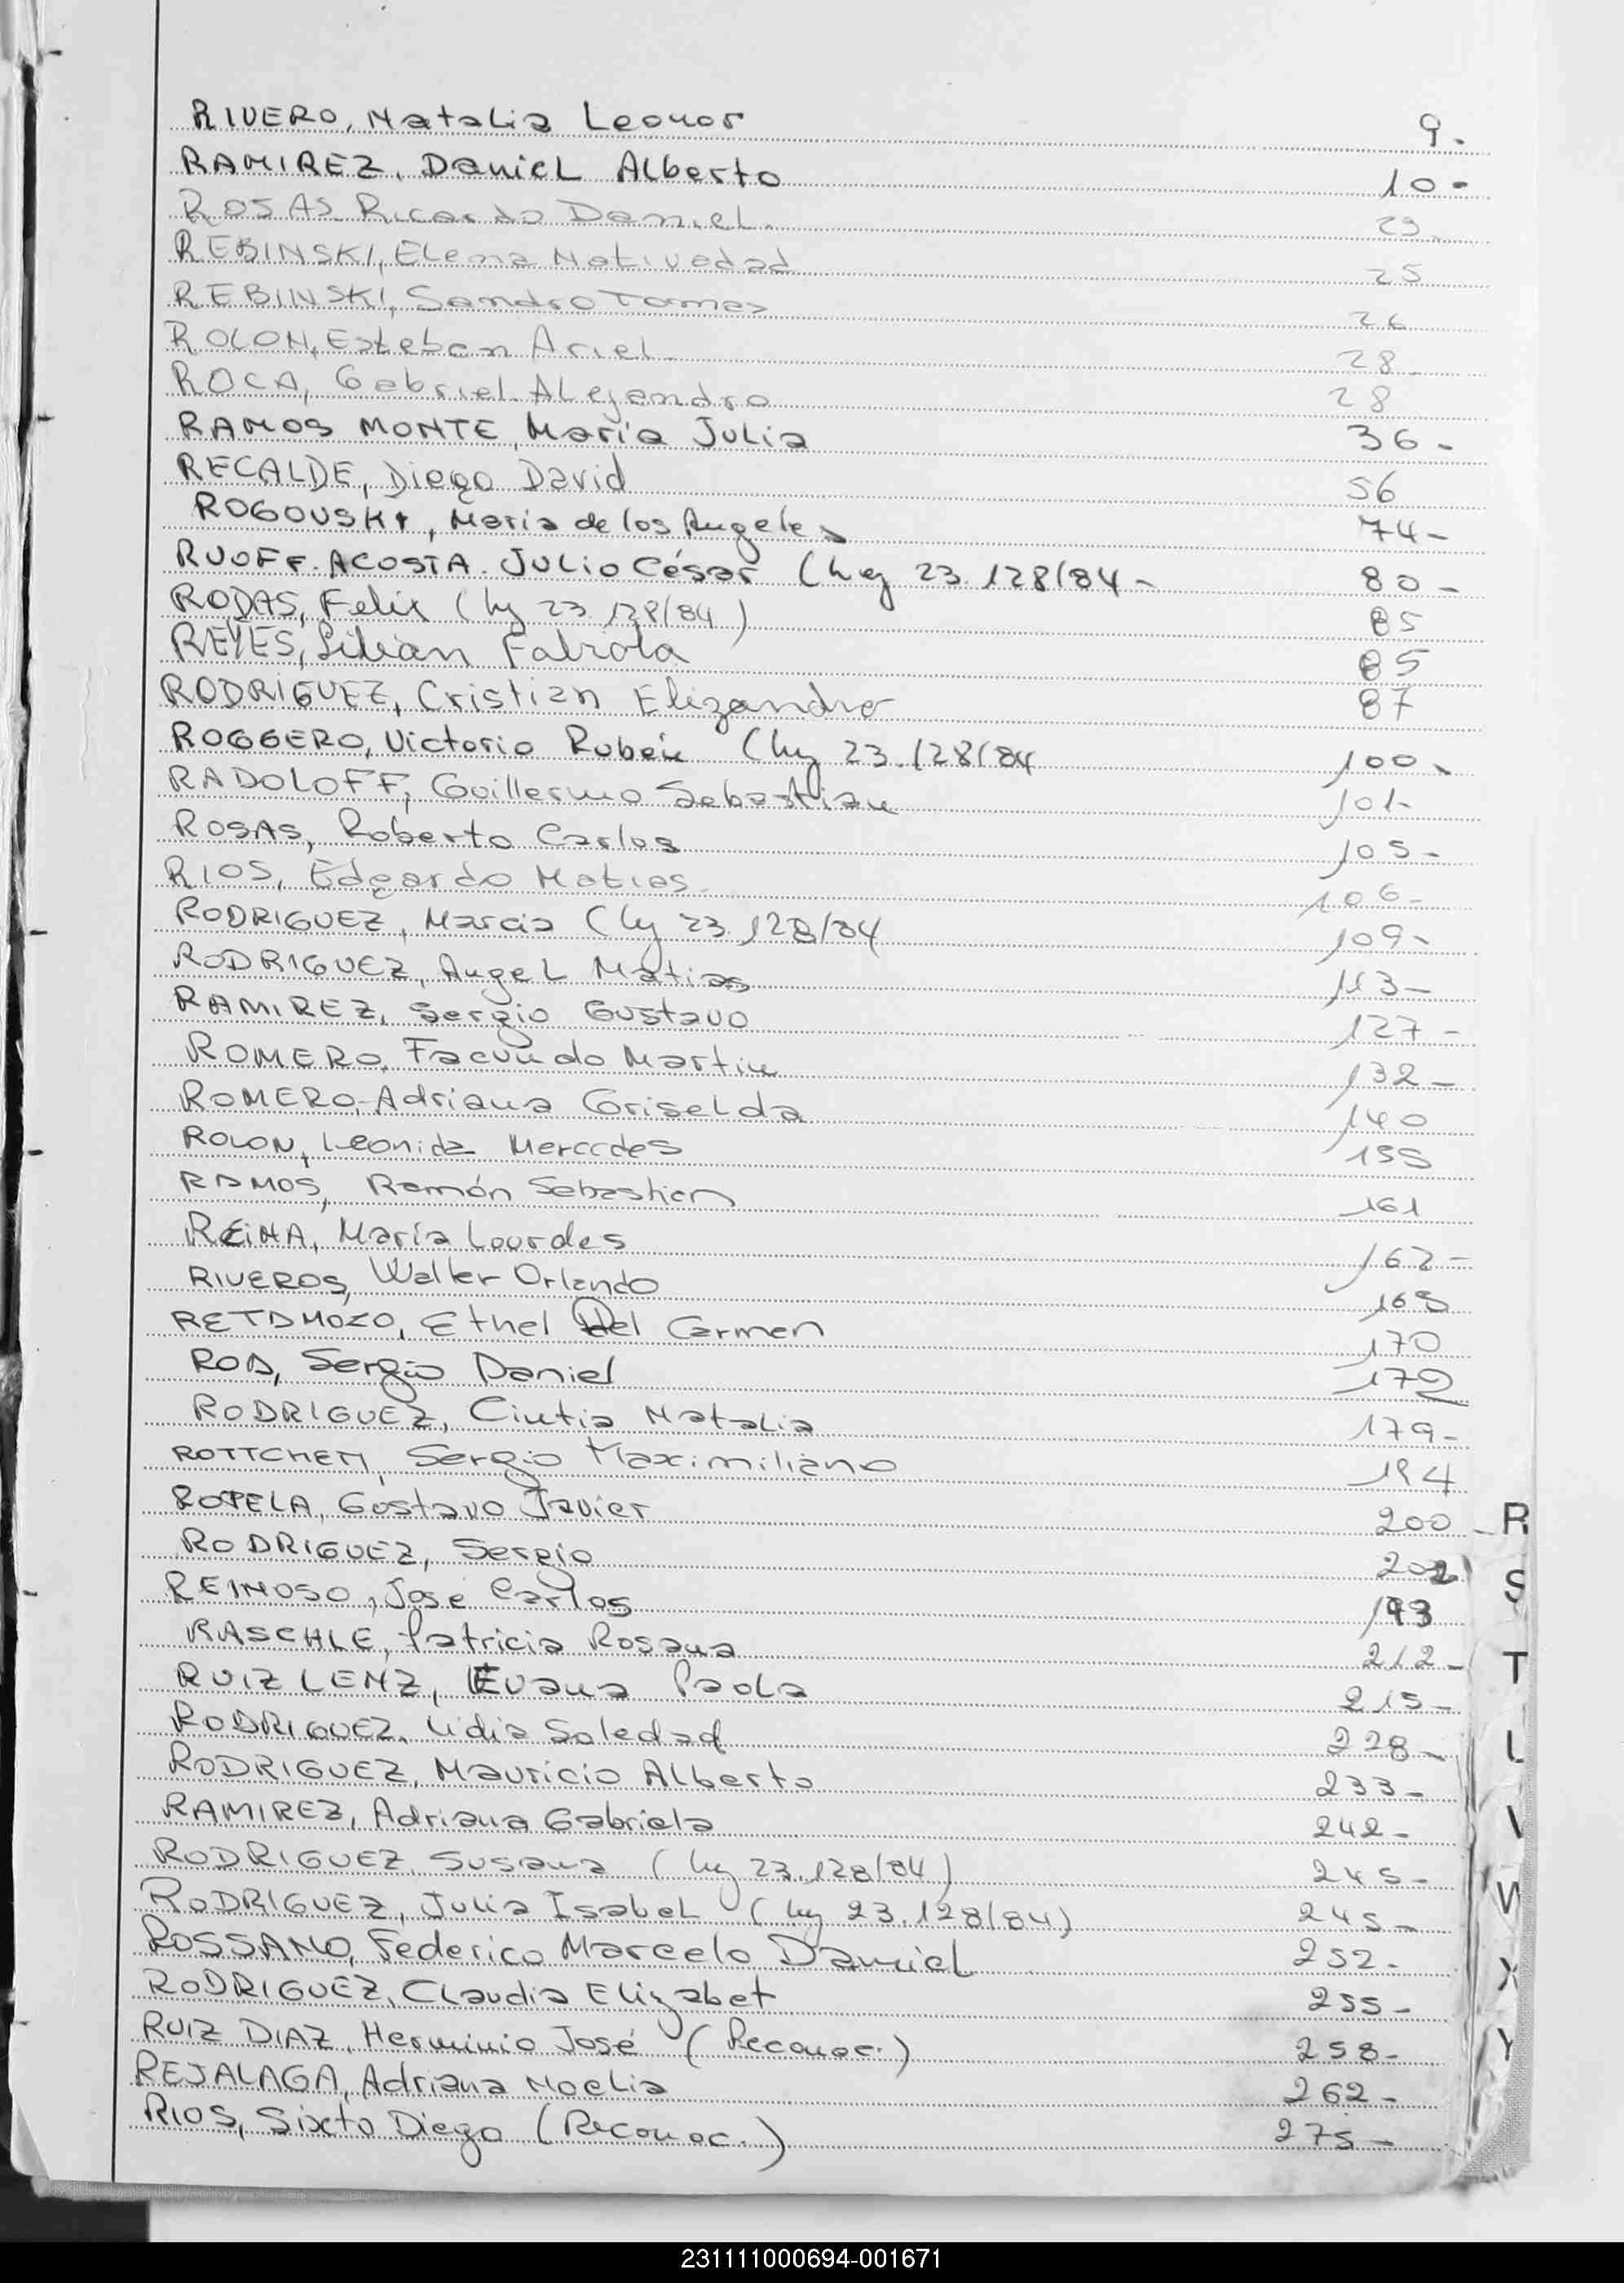 RIVERO, Natalia Leonor 9.
RAMIREZ, Daniel Alberto 10-
ROSAS Ricardo Daniel. 23
REBINSKI, Elena Natividad 25
REBINSKI, Sandro Tomas 26
ROLON, Esteban Ariel. 28
ROCA, Gabriel Alejandro 28
RAMOS MONTE, María Julia 36-
RECALDE, Diego David 56
ROGOVSKI, María de los Angeles 74-
RUOFF-ACOSTA. JULIO César (ley 23.128/84- 80-
RODAS, Felix (ley 23.128/84) 85
REYES, Lilian Fabiola 85
RODRIGUEZ, Cristian Elizandro 87
ROGGERO, Victorio Rubén (ley 23.128/84 100-
RADOLOFF, Guillermo Sebastian 101-
ROSAS, Roberto Carlos 105-
RIOS, Edgardo Matias. 106-
RODRIGUEZ, Marcia (ley 23.128/84 109-
RODRIGUEZ, Angel Matias 113-
RAMIREZ, Sergio Gustavo 127-
ROMERO, Facundo Martin 132-
ROMERO, Adriana Griselda 140
ROLON, Leonida Mercedes 155
RAMOS, Ramón Sebastian 161
REINA, María Lourdes 162-
RIVEROS, Walter Orlando 165
RETAMOZO, Ethel Del Carmen 170
ROA, Sergio Daniel 172
RODRIGUEZ, Cintia Natalia 179-
ROTTCHEN, Sergio Maximiliano 194
ROTELA, Gustavo Javier 200
RODRIGUEZ, Sergio 202
REINOSO, José Carlos 193
RASCHLE, Patricia Rosana 212-
RUIZ LENZ, Evana Paola 215-
RODRIGUEZ, Lidia Soledad 228-
RODRIGUEZ, Mauricio Alberto 233-
RAMIREZ, Adriana Gabriela 242-
RODRIGUEZ, Susana (ley 23.128/84) 245-
RODRIGUEZ, Julia Isabel (ley 23.128/84) 245-
ROSSANO, Federico Marcelo Daniel 252-
RODRIGUEZ, Claudia Elizabet 255-
RUIZ DIAZ, Herminio José (Reconoc.) 258-
REJALAGA, Adriana Noelia 262-
RIOS, Sixto Diego (Reconoc.) 275-
R
S
T
V
W
X
Y
231111000694-001671